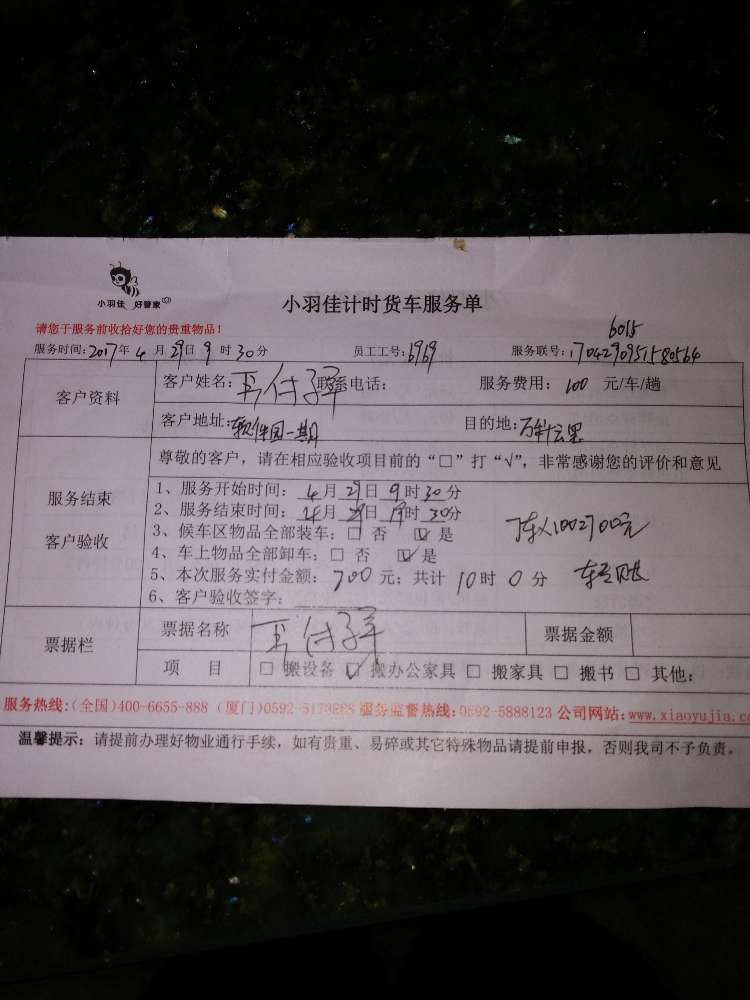 小羽佳 好管家
小羽佳计时货车服务单
请您于服务前收拾好您的贵重物品！
6015
服务时间：2017年4月29日9时30分 员工工号：6969 服务联号：1704290951580564
客户资料
客户姓名： 联系电话： 服务费用：100元/车/趟
客户地址：软件园一期 目的地：万科云思
尊敬的客户，请在相应验收项目前的“□”打“√”，非常感谢您的评价和意见
服务结束
客户验收
1、服务开始时间：4月29日9时30分
2、服务结束时间：4月29日19时30分
3、候车区物品全部装车：□ 否 ☑ 是
7车X100=700元
4、车上物品全部卸车：□ 否 ☑ 是
5、本次服务实付金额：700元；共计10时0分
6、客户验收签字：
票据栏
票据名称 票据金额
项 目 □ 搬设备 ☑ 搬办公家具 □ 搬家具 □ 搬书 □ 其他：
服务热线：(全国)400-6655-888 (厦门)0592-5178888 服务监督热线：0592-5888123 公司网站：www.xiaoyujia.c
温馨提示：请提前办理好物业通行手续，如有贵重、易碎或其它特殊物品请提前申报，否则我司不予负责。